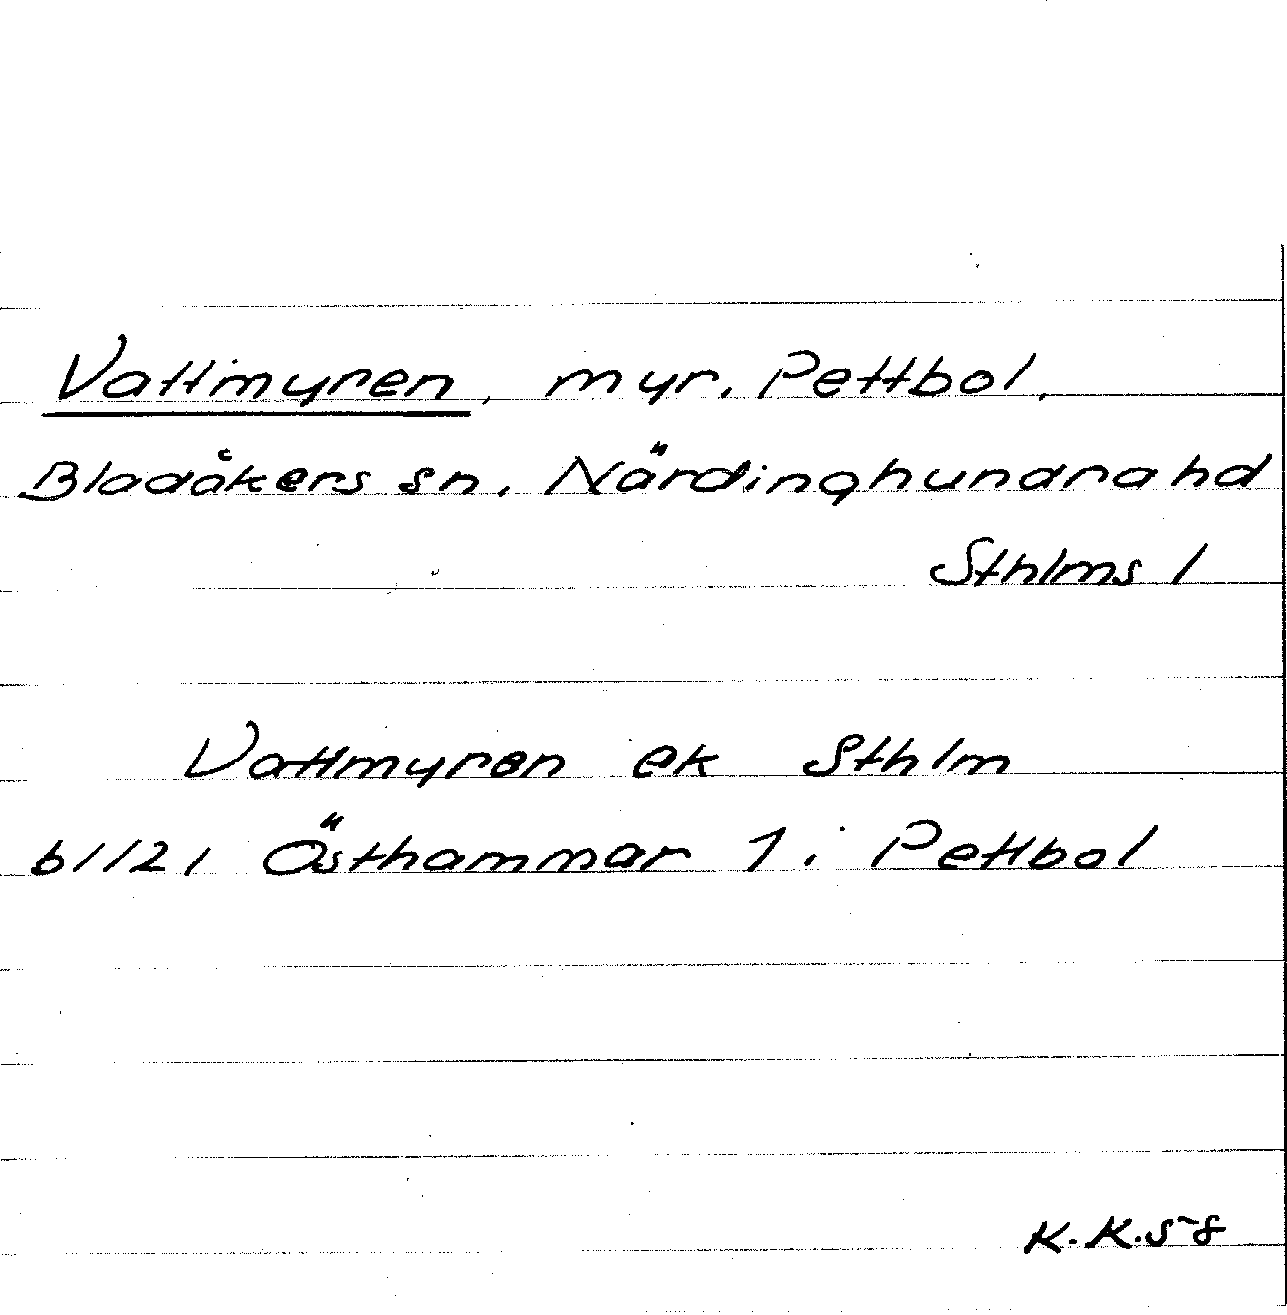 Vattmyren, myr. Pettbol,
Bladåkers sn. Närdinghundra hd
Sthlms l
Vattmyren ek Sthlm
bl 121 Östhammar 1. Pettbol
K.K.58